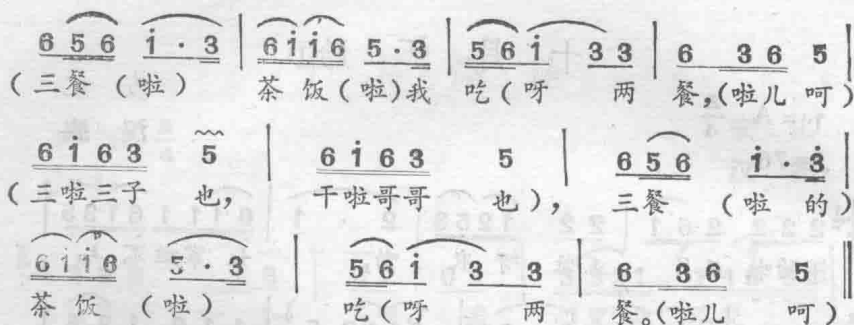 6 5 6 i · 3 | 6 i i 6 5 · 3 | 5 6 i 3 3 | 6 3 6 5 |
(三餐 (啦) 茶 饭(啦)我 吃(呀 两 餐,(啦儿 呵)
6 i 6 3 5 | 6 i 6 3 5 | 6 5 6 i · 3 |
(三啦三子 也, 干啦哥哥 也), 三餐 (啦 的)
6 i i 6 5 · 3 | 5 6 i 3 3 | 6 3 6 5 ‖
茶 饭 (啦) 吃(呀 两 餐。(啦儿 呵)